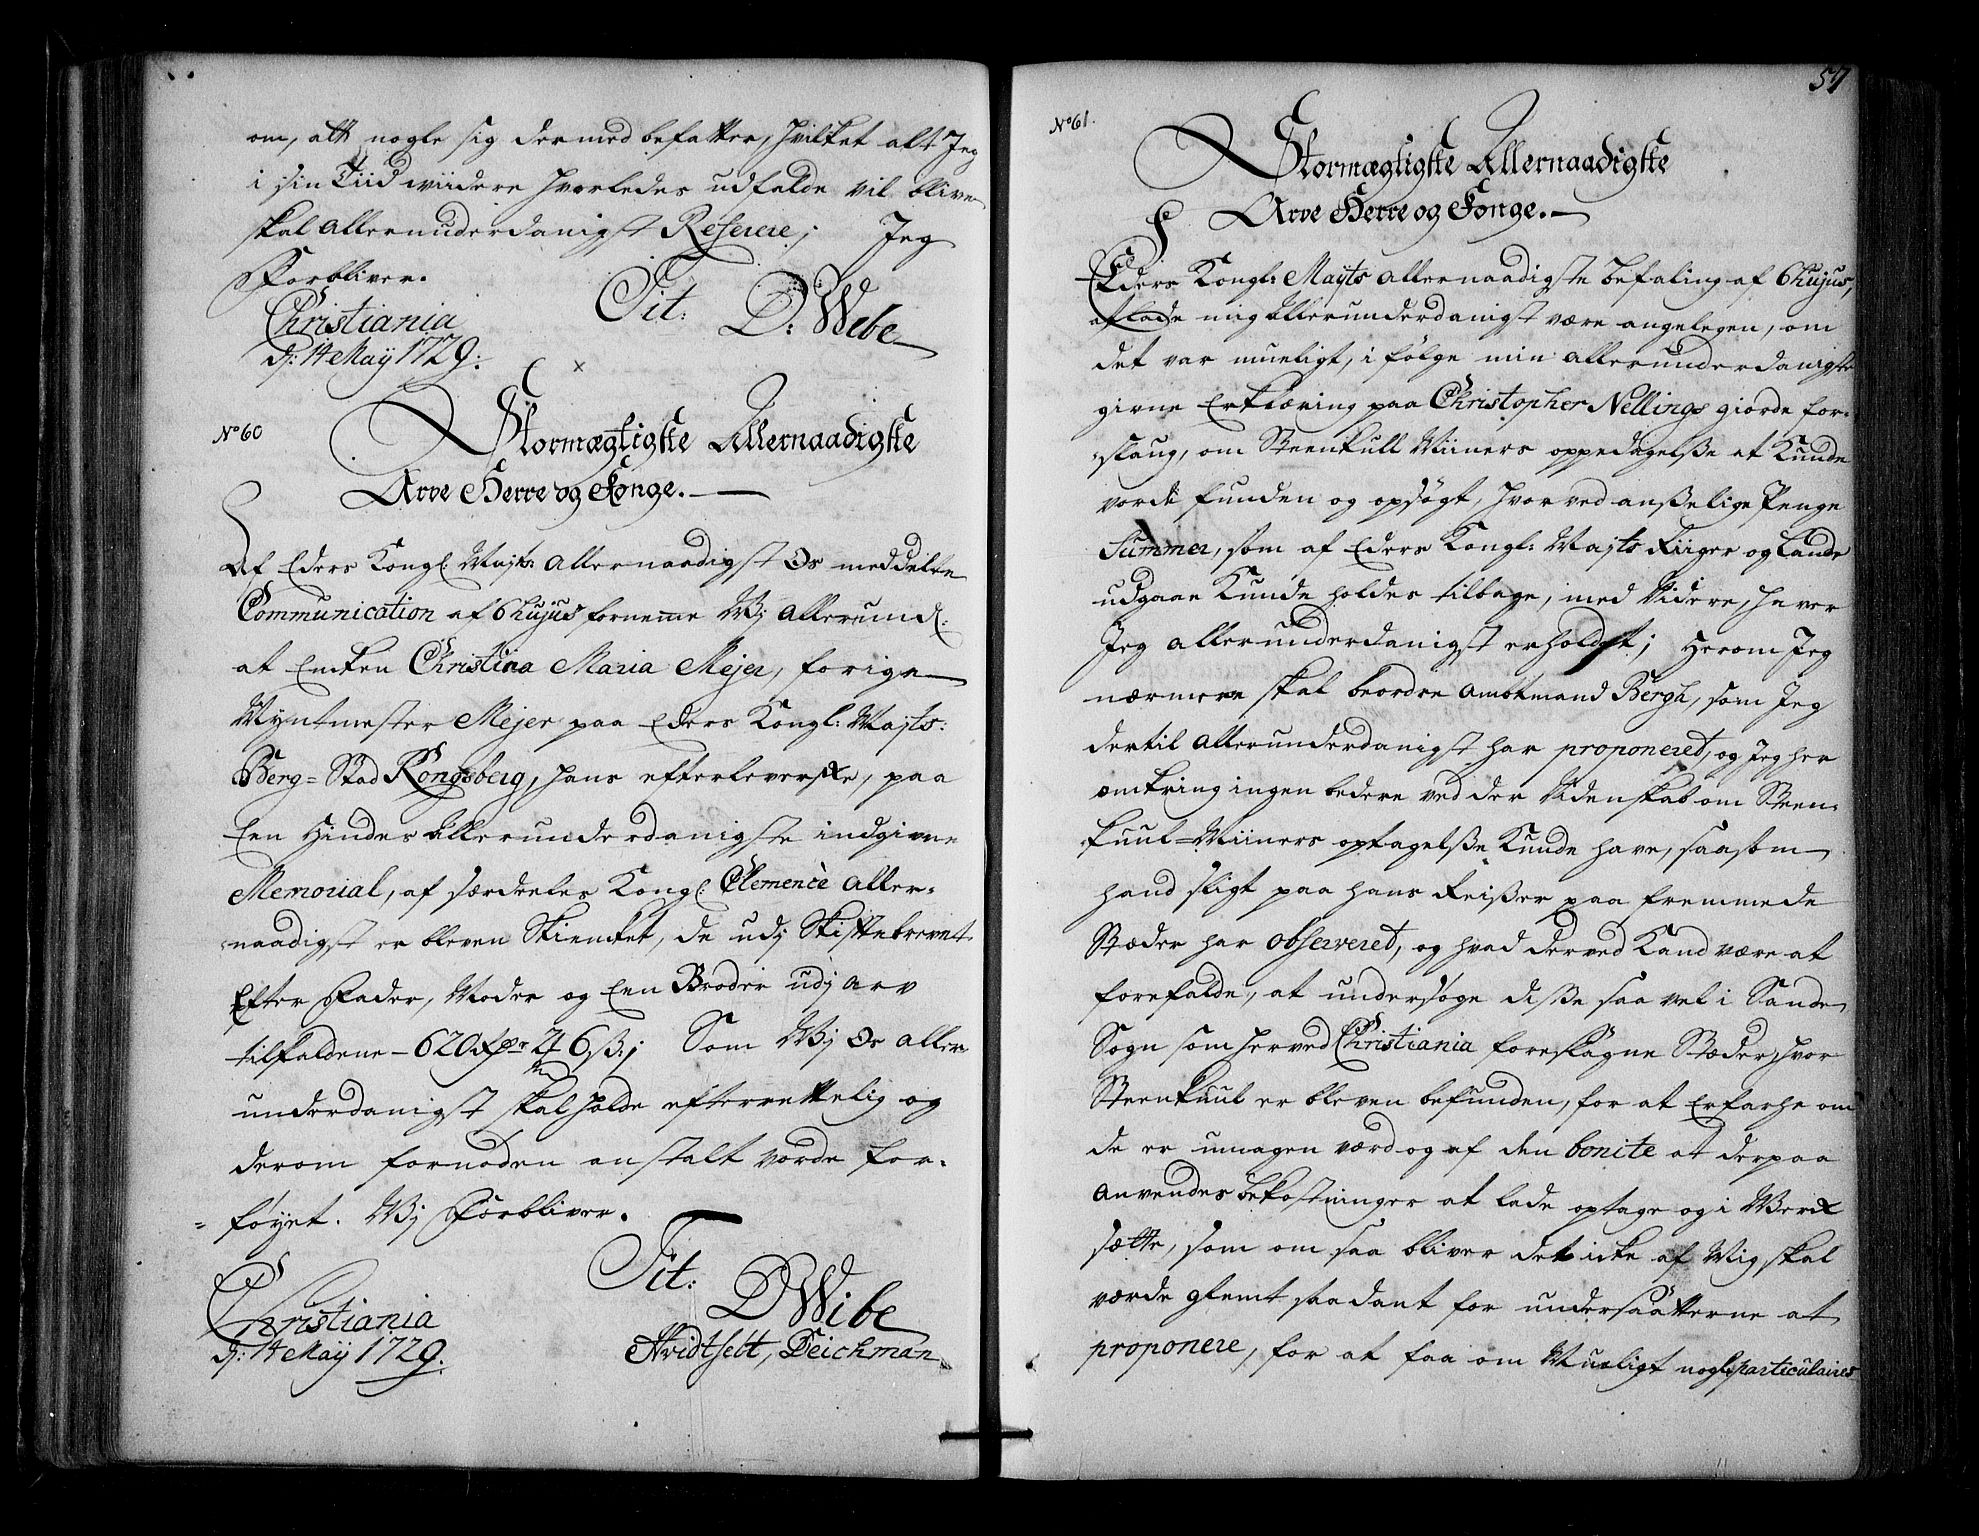 om, att nogle sig dermed befatter, hvilket alt Jeg
i sin Tiid wiidere hvorledes udfalde vil blive
skal allerunderdanigst Referere; Jeg
Forbliver.
Tit: D: Wibe
Christiania
d: 14 May 1729:
No 60
Stormægtigste Allernaadigste
Arve Herre og Konge.
Af Eders Kongl: Mayts: Allernaadigst Os meddelte
Communication af 6 hujus fornemme Wj allerund:
at Encken Christina Maria Mejer, forige
Myntmester Mejer paa Eders Kongl: Mayts:
Berg-Stad Kongsberg, hans efterleverske, paa
Een Hindes Allerunderdanigste indgivne
Memorial, af særdeeles Kongl: Clemence Aller-
naadigst er bleven Skiencket, de udj Skiftebrevet
Efter Fader, Moder og Een Broder udj Arv
tilfaldene - 620 Rdr 2 6 ß; Som Wj Os aller
underdanigst skal holde efterrettelig og
derom fornøden anstalt vorde for-
føyet. Wj Forbliver.
Tit: D Wibe
Hvidtfelt, Deichman
Christiania
d: 14 May 1729.
57
No 61.
Stormægtigste Allernaadigste
Arve Herre og Konge.
Eders Kongl: Mayts allernaadigste befaling af 6 hujus,
at lade mig Allerunderdanigst være angelegen, om
det var mueligt, i følge min allerunderdanigste
givne Erklæring paa Christopher Nellings giorde for-
slaug, om Steenkull Miiners oppedagelße at Kunde
vorde funden og opsøgt, hvorved anßelige Penge
Summer, som af Eders Kongl: Mayts Riiger og Lande
udgaar Kunde holdes tilbage, med Videre, haver
Jeg allerunderdanigst erholdet; Herom Jeg
nærmere skal beordre Ambtmand Bergh, som Jeg
dertil Allerunderdanigst har proponeret, og Jeg her
omkring ingen bedere ved der Videnskab om Steen-
kuul-Miiners optagelße Kunde have, saasom
hand sligt paa hans Reißer paa fremmede
Stæder har observeret, og hvad derved Kand være at
forefalde, at undersøge diße saa vel i Sande
Sogn som herved Christiania foreslagne Stæder, hvor
Steenkuul er bleven befunden, for at Erfarhe om
de er umagen værd og af den bonite at derpaa
Anvendes bekostninger at lade optage og i Werck
sætte, som om saa bliver det icke af Mig skal
vorde glemt saadant for undersaatterne at
proponere, for at faa om Mueligt nogle particulaires